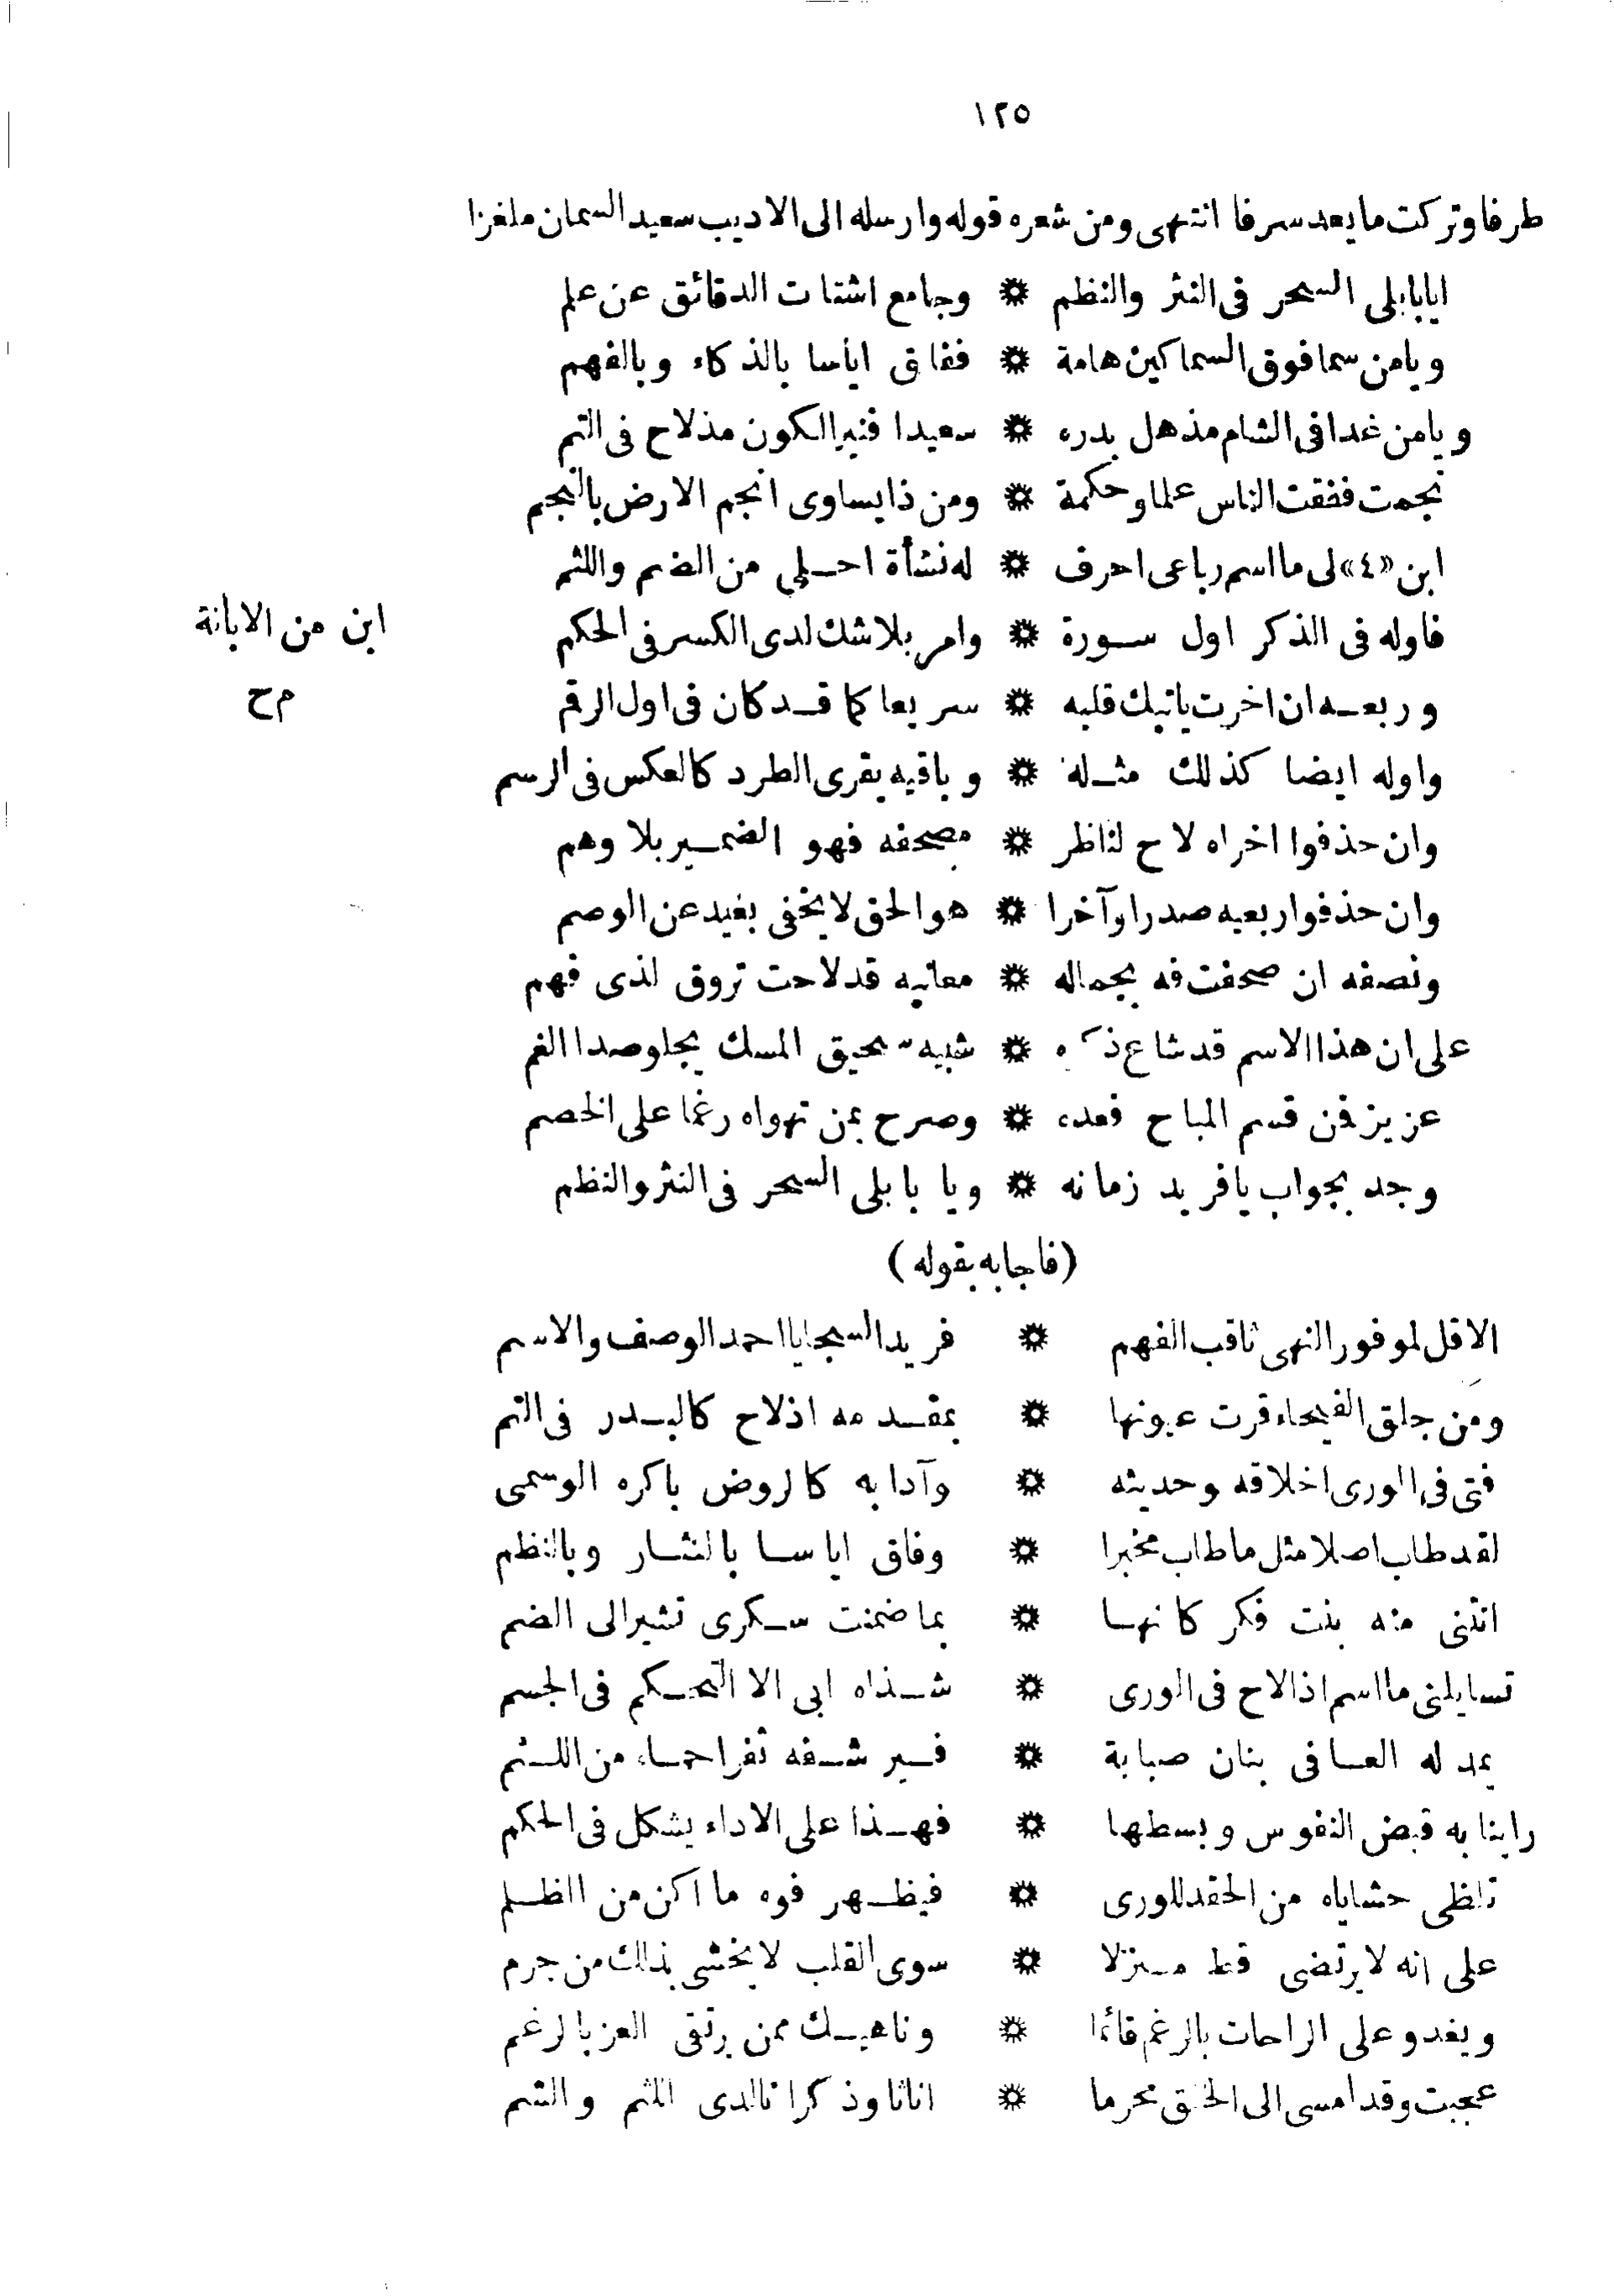 ١٢٥
طرفا وتركت ما يعد سرفا انتهى ومن شعره قوله وارسله الى الاديب سعيد السمان ملغزا
ايا بابلى السحر فى النثر والنظم ❋ وجامع اشتات الدقائق عن علم
ويا من سما فوق السماكين هامة ❋ ففاق اياسا بالذكاء وبالفهم
ويا من غدا فى الشام مذ هل بدره ❋ سعيدا فنير الكون مذ لاح فى التم
نجمت ففقت الناس علما وحكمة ❋ ومن ذا يساوى انجم الارض بالنجم
ابن «٤» لى ما اسم رباعى احرف ❋ له نشأة احلى من الضم واللثم
ابن من الابانة
فاوله فى الذكر اول سورة ❋ وامر بلا شك لدى الكسر فى الحكم
م ح
وربعه ان اخرت ياتيك قلبه ❋ سريعا كما قد كان فى اول الرقم
واوله ايضا كذلك مثله ❋ وباقيه يقرى الطرد كالعكس فى الرسم
وان حذفوا اخراه لاح لناظر ❋ مصحفه فهو الضمير بلا وهم
وان حذفوا ربعيه صدرا وآخرا ❋ هو الحق لا يخفى بغيد عن الوصم
ونصفه ان صحفت فه بجماله ❋ معانيه قد لاحت تروق لذى فهم
على ان هذا الاسم قد شاع ❋ شبيه سحيق المسك يجلو صدا الغم
عزيز فن قسم المباح فعده ❋ وصرح بمن تهواه رغما على الخصم
وجد بجواب يا فريد زمانه ❋ ويا بابلى السحر فى النثر والنظم
(فاجابه بقوله)
الا قل لموفور النهى ثاقب الفهم ❋ فريد السجايا احمد الوصف والاسم
ومن جلق الفيحاء قرت عيونها ❋ بمقدمه اذ لاح كالبدر فى التم
فتى فى الورى اخلاقه وحديثه ❋ وآدابه كالروض باكره الوسمى
لقد طاب اصلا مثل ما طاب مخبرا ❋ وفاق اياسا بالنثار وبالنظم
اتتنى منه بنت فكر كانها ❋ بما ضمنت سكرى تشير الى الضم
تسايلنى ما اسم اذا لاح فى الورى ❋ شذاه ابى الا التحكم فى الجسم
يمد له العافى بنان صبابة ❋ فير شفه ثغرا حماه من اللثم
راينا به قبض النفوس وبسطها ❋ فهذا على الاداء يشكل فى الحكم
تلظى حشاياه من الحقد للورى ❋ فيظهر فوه ما اكن من الظلم
على انه لا يرتضى قط منزلا ❋ سوى القلب لا يخشى بذلك من جرم
ويغدو على الراحات بالرغم قائما ❋ وناهيك ممن يرتقى العز بالرغم
عجبت وقد امسى الى الخلق محرما ❋ اناثا وذكرانا لدى اللثم والشم